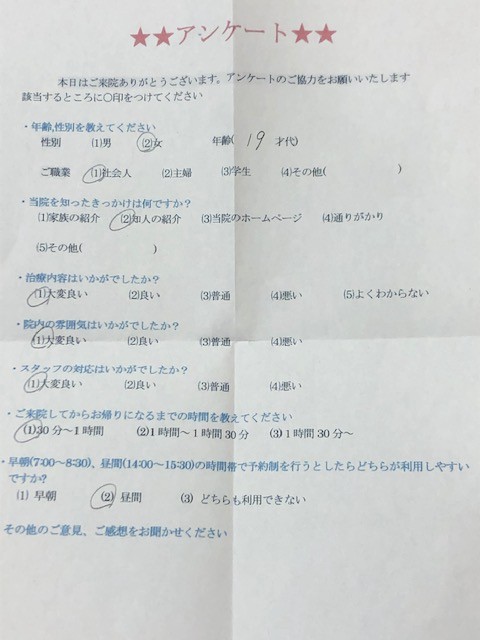 ★★アンケート★★
本日はご来院ありがとうございます。アンケートのご協力をお願いいたします
該当するところに○印をつけてください
・年齢,性別を教えてください
性別 (1)男 (2)女 年齢( 19 才代)
ご職業 (1)社会人 (2)主婦 (3)学生 (4)その他( )
・当院を知ったきっかけは何ですか?
(1)家族の紹介 (2)知人の紹介 (3)当院のホームページ (4)通りがかり
(5)その他( )
・治療内容はいかがでしたか?
(1)大変良い (2)良い (3)普通 (4)悪い (5)よくわからない
・院内の雰囲気はいかがでしたか?
(1)大変良い (2)良い (3)普通 (4)悪い
・スタッフの対応はいかがでしたか?
(1)大変良い (2)良い (3)普通 (4)悪い
・ご来院してからお帰りになるまでの時間を教えてください
(1)30分～1時間 (2)1時間～1時間30分 (3)1時間30分～
・早朝(7:00~8:30)、昼間(14:00~15:30)の時間帯で予約制を行うとしたらどちらが利用しやすい
ですか?
(1) 早朝 (2) 昼間 (3) どちらも利用できない
その他のご意見、ご感想をお聞かせください